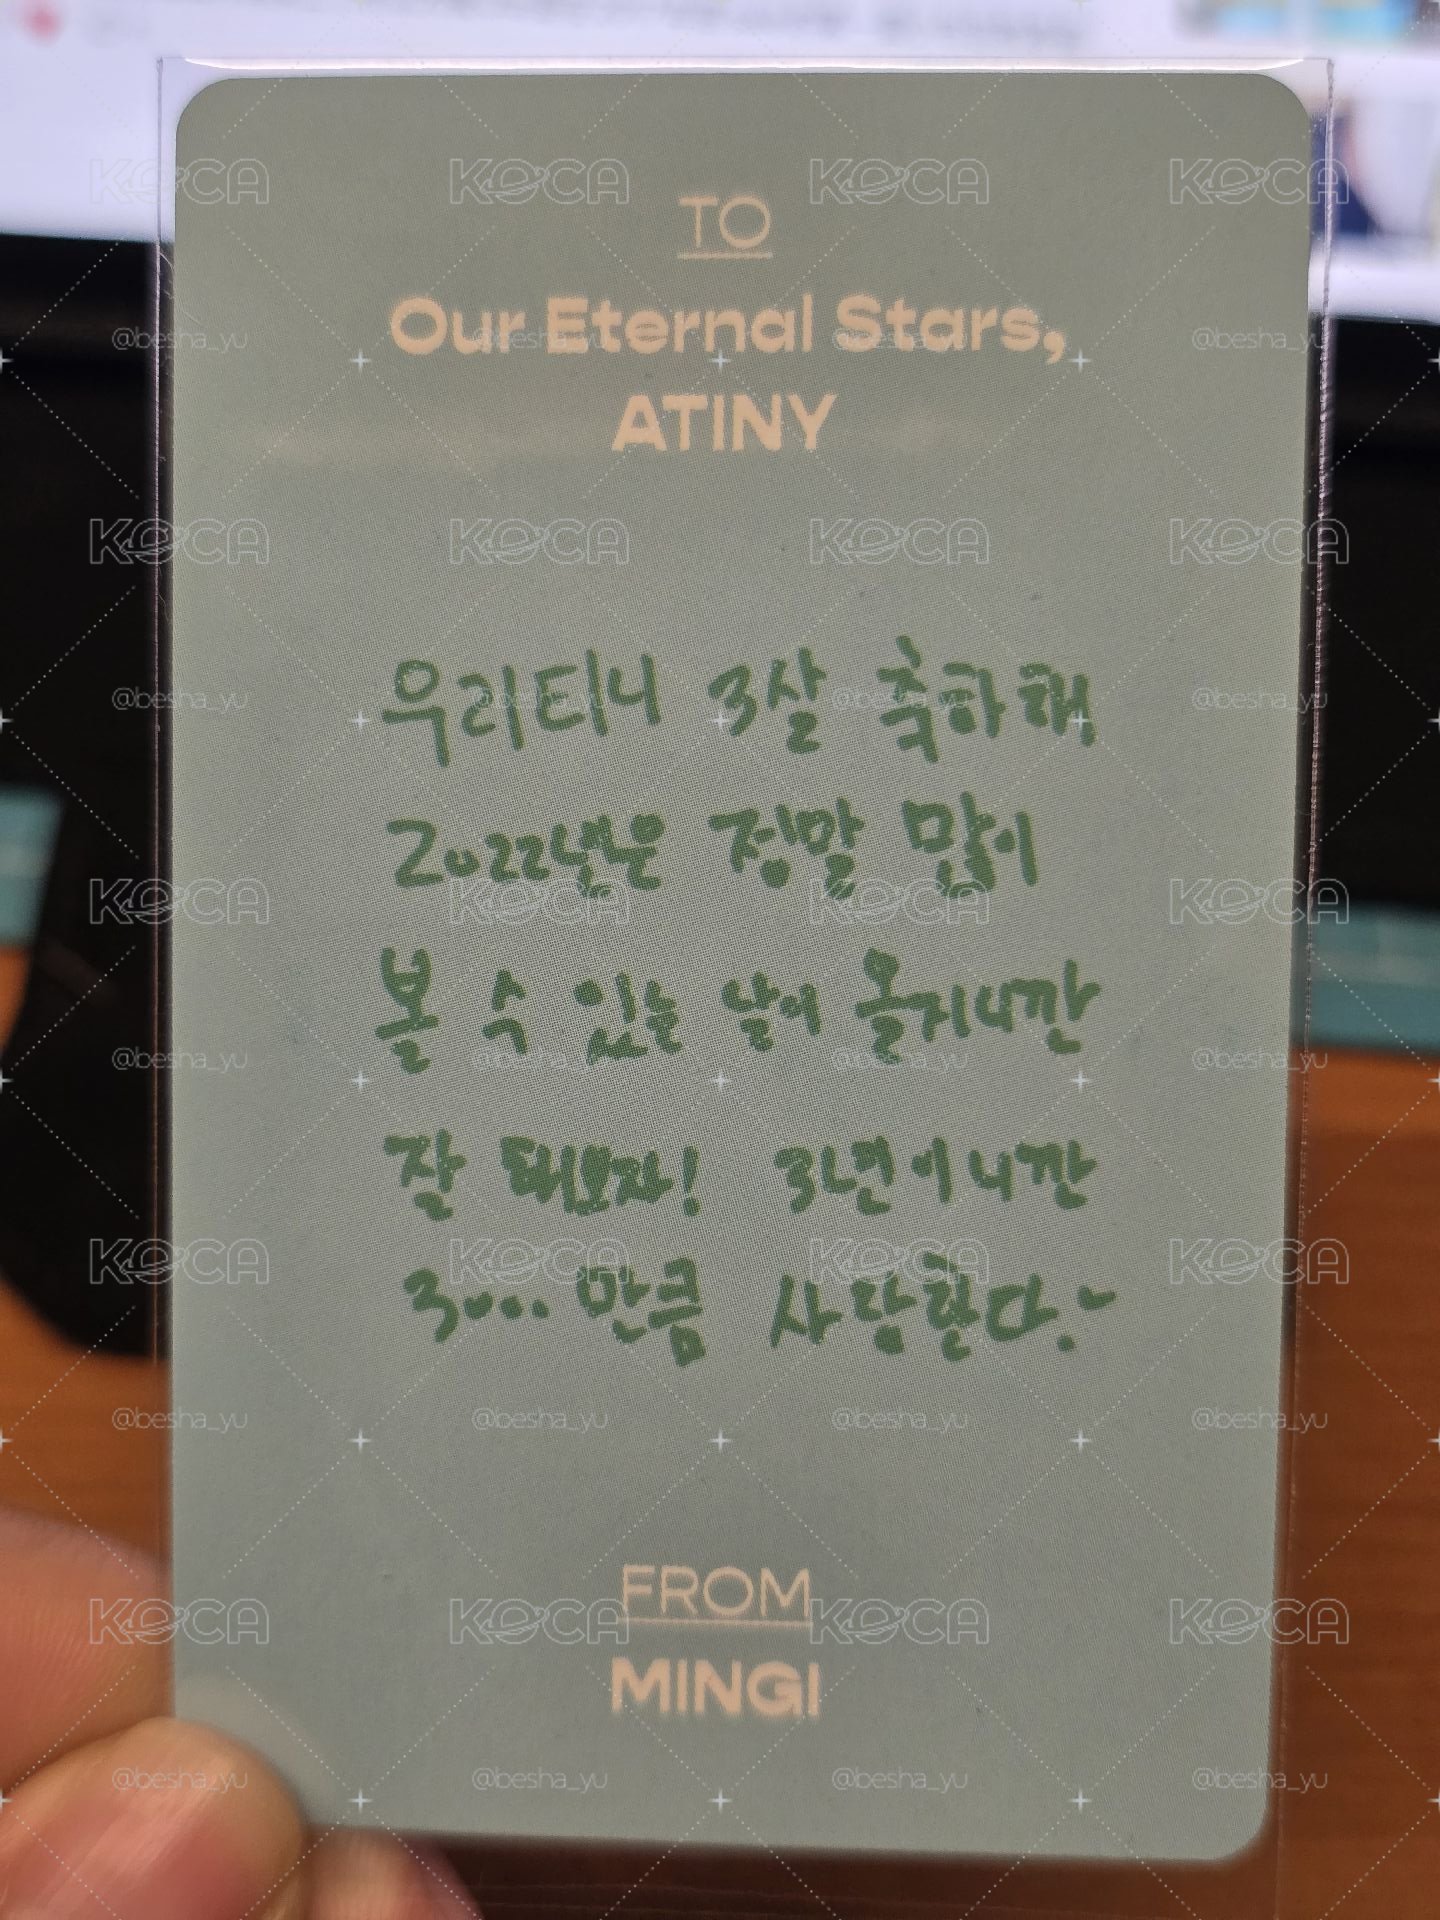 TO
Our Eternal Stars,
ATINY
우리티니 3살 축하해
2022년은 정말 많이
볼 수 있는 날이 올지니깐
잘 해보자! 3년이니깐
3000만큼 사랑한다.
FROM
MINGI
KOCA
@besha_yu